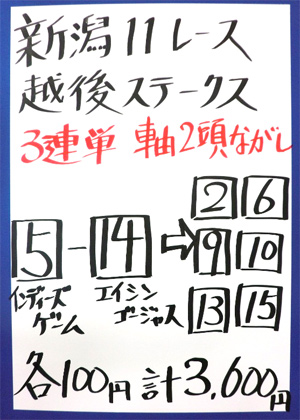 新潟11レース
越後ステークス
3連単 軸2頭ながし
2 6
5-14⇨9 10
インディーズ エイシン
ゲーム ゴージャス 13 15
各100円 計3,600円